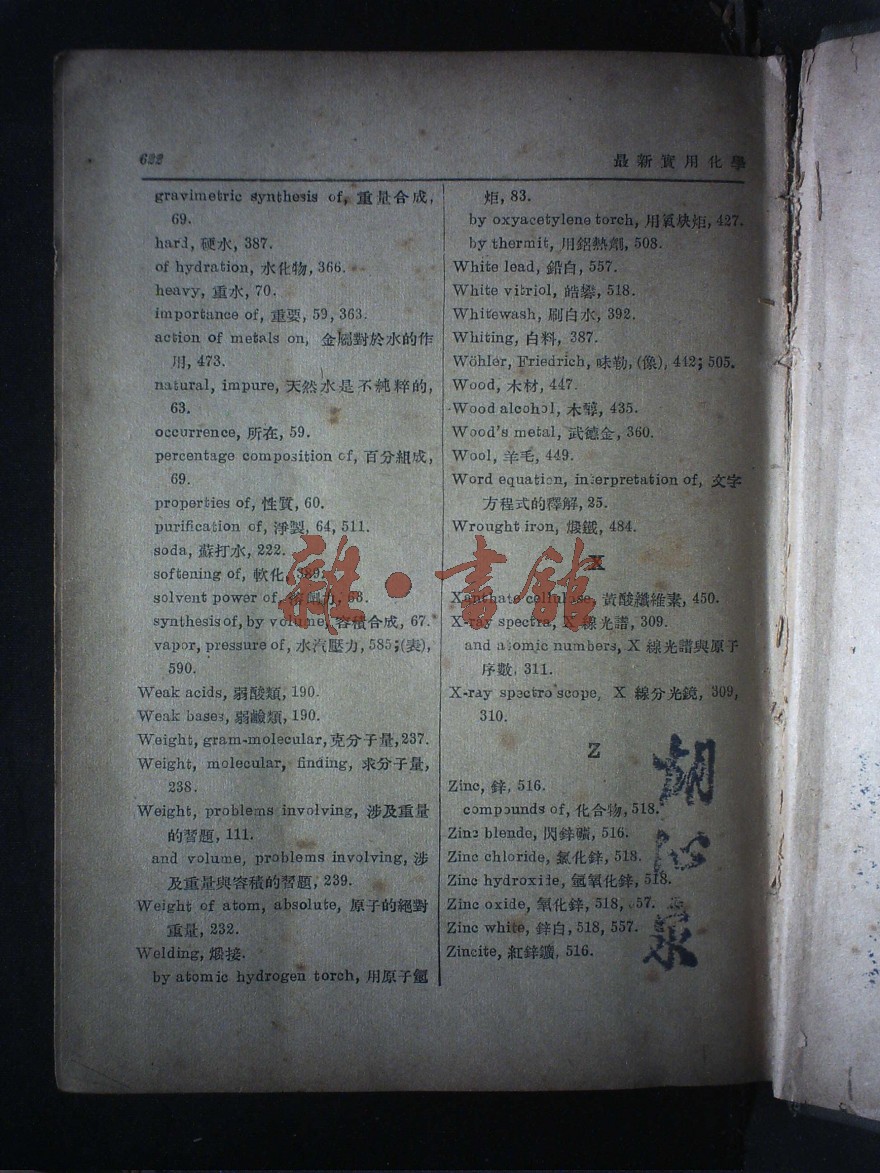 622
最新實用化學
gravimetric synthesis of, 重量合成,
69.
hard, 硬水, 387.
of hydration, 水化物, 366.
heavy, 重水, 70.
importance of, 重要, 59, 363.
action of metals on, 金屬對於水的作
用, 473.
natural, impure, 天然水是不純粹的,
63.
occurrence, 所在, 59.
percentage composition of, 百分組成,
69.
properties of, 性質, 60.
purification of, 淨製, 64, 511.
soda, 蘇打水, 222.
softening of, 軟化, 389.
solvent power of, 溶解力, 63.
synthesis of, by volume, 容積合成, 67.
vapor, pressure of, 水汽壓力, 585; (表),
590.
Weak acids, 弱酸類, 190.
Weak bases, 弱鹼類, 190.
Weight, gram-molecular, 克分子量, 237.
Weight, molecular, finding, 求分子量,
238.
Weight, problems involving, 涉及重量
的習題, 111.
and volume, problems involving, 涉
及重量與容積的習題, 239.
Weight of atom, absolute, 原子的絕對
重量, 232.
Welding, 煅接.
by atomic hydrogen torch, 用原子氫
炬, 83.
by oxyacetylene torch, 用氧炔炬, 427.
by thermit, 用鋁熱劑, 508.
White lead, 鉛白, 557.
White vitriol, 皓礬, 518.
Whitewash, 刷白水, 392.
Whiting, 白料, 387.
Wöhler, Friedrich, 味勒, (像), 442; 505.
Wood, 木材, 447.
Wood alcohol, 木醇, 435.
Wood's metal, 武德金, 360.
Wool, 羊毛, 449.
Word equation, interpretation of, 文字
方程式的釋解, 25.
Wrought iron, 煅鐵, 484.
X
Xanthate cellulose, 黃酸纖維素, 450.
X-ray spectra, X 線光譜, 309.
and atomic numbers, X 線光譜與原子
序數, 311.
X-ray spectroscope, X 線分光鏡, 309,
310.
Z
Zinc, 鋅, 516.
compounds of, 化合物, 518.
Zinc blende, 閃鋅礦, 516.
Zinc chloride, 氯化鋅, 518.
Zinc hydroxide, 氫氧化鋅, 518.
Zinc oxide, 氧化鋅, 518, 557.
Zinc white, 鋅白, 518, 557.
Zincite, 紅鋅鑛, 516.
雜·書館
胡
心
泉